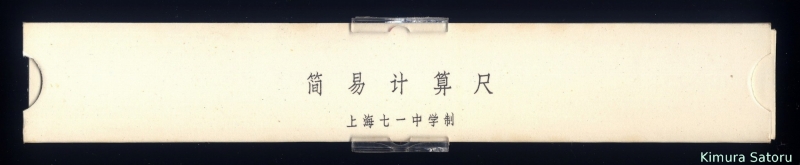 简易计算尺
上海七一中学制
Kimura Satoru